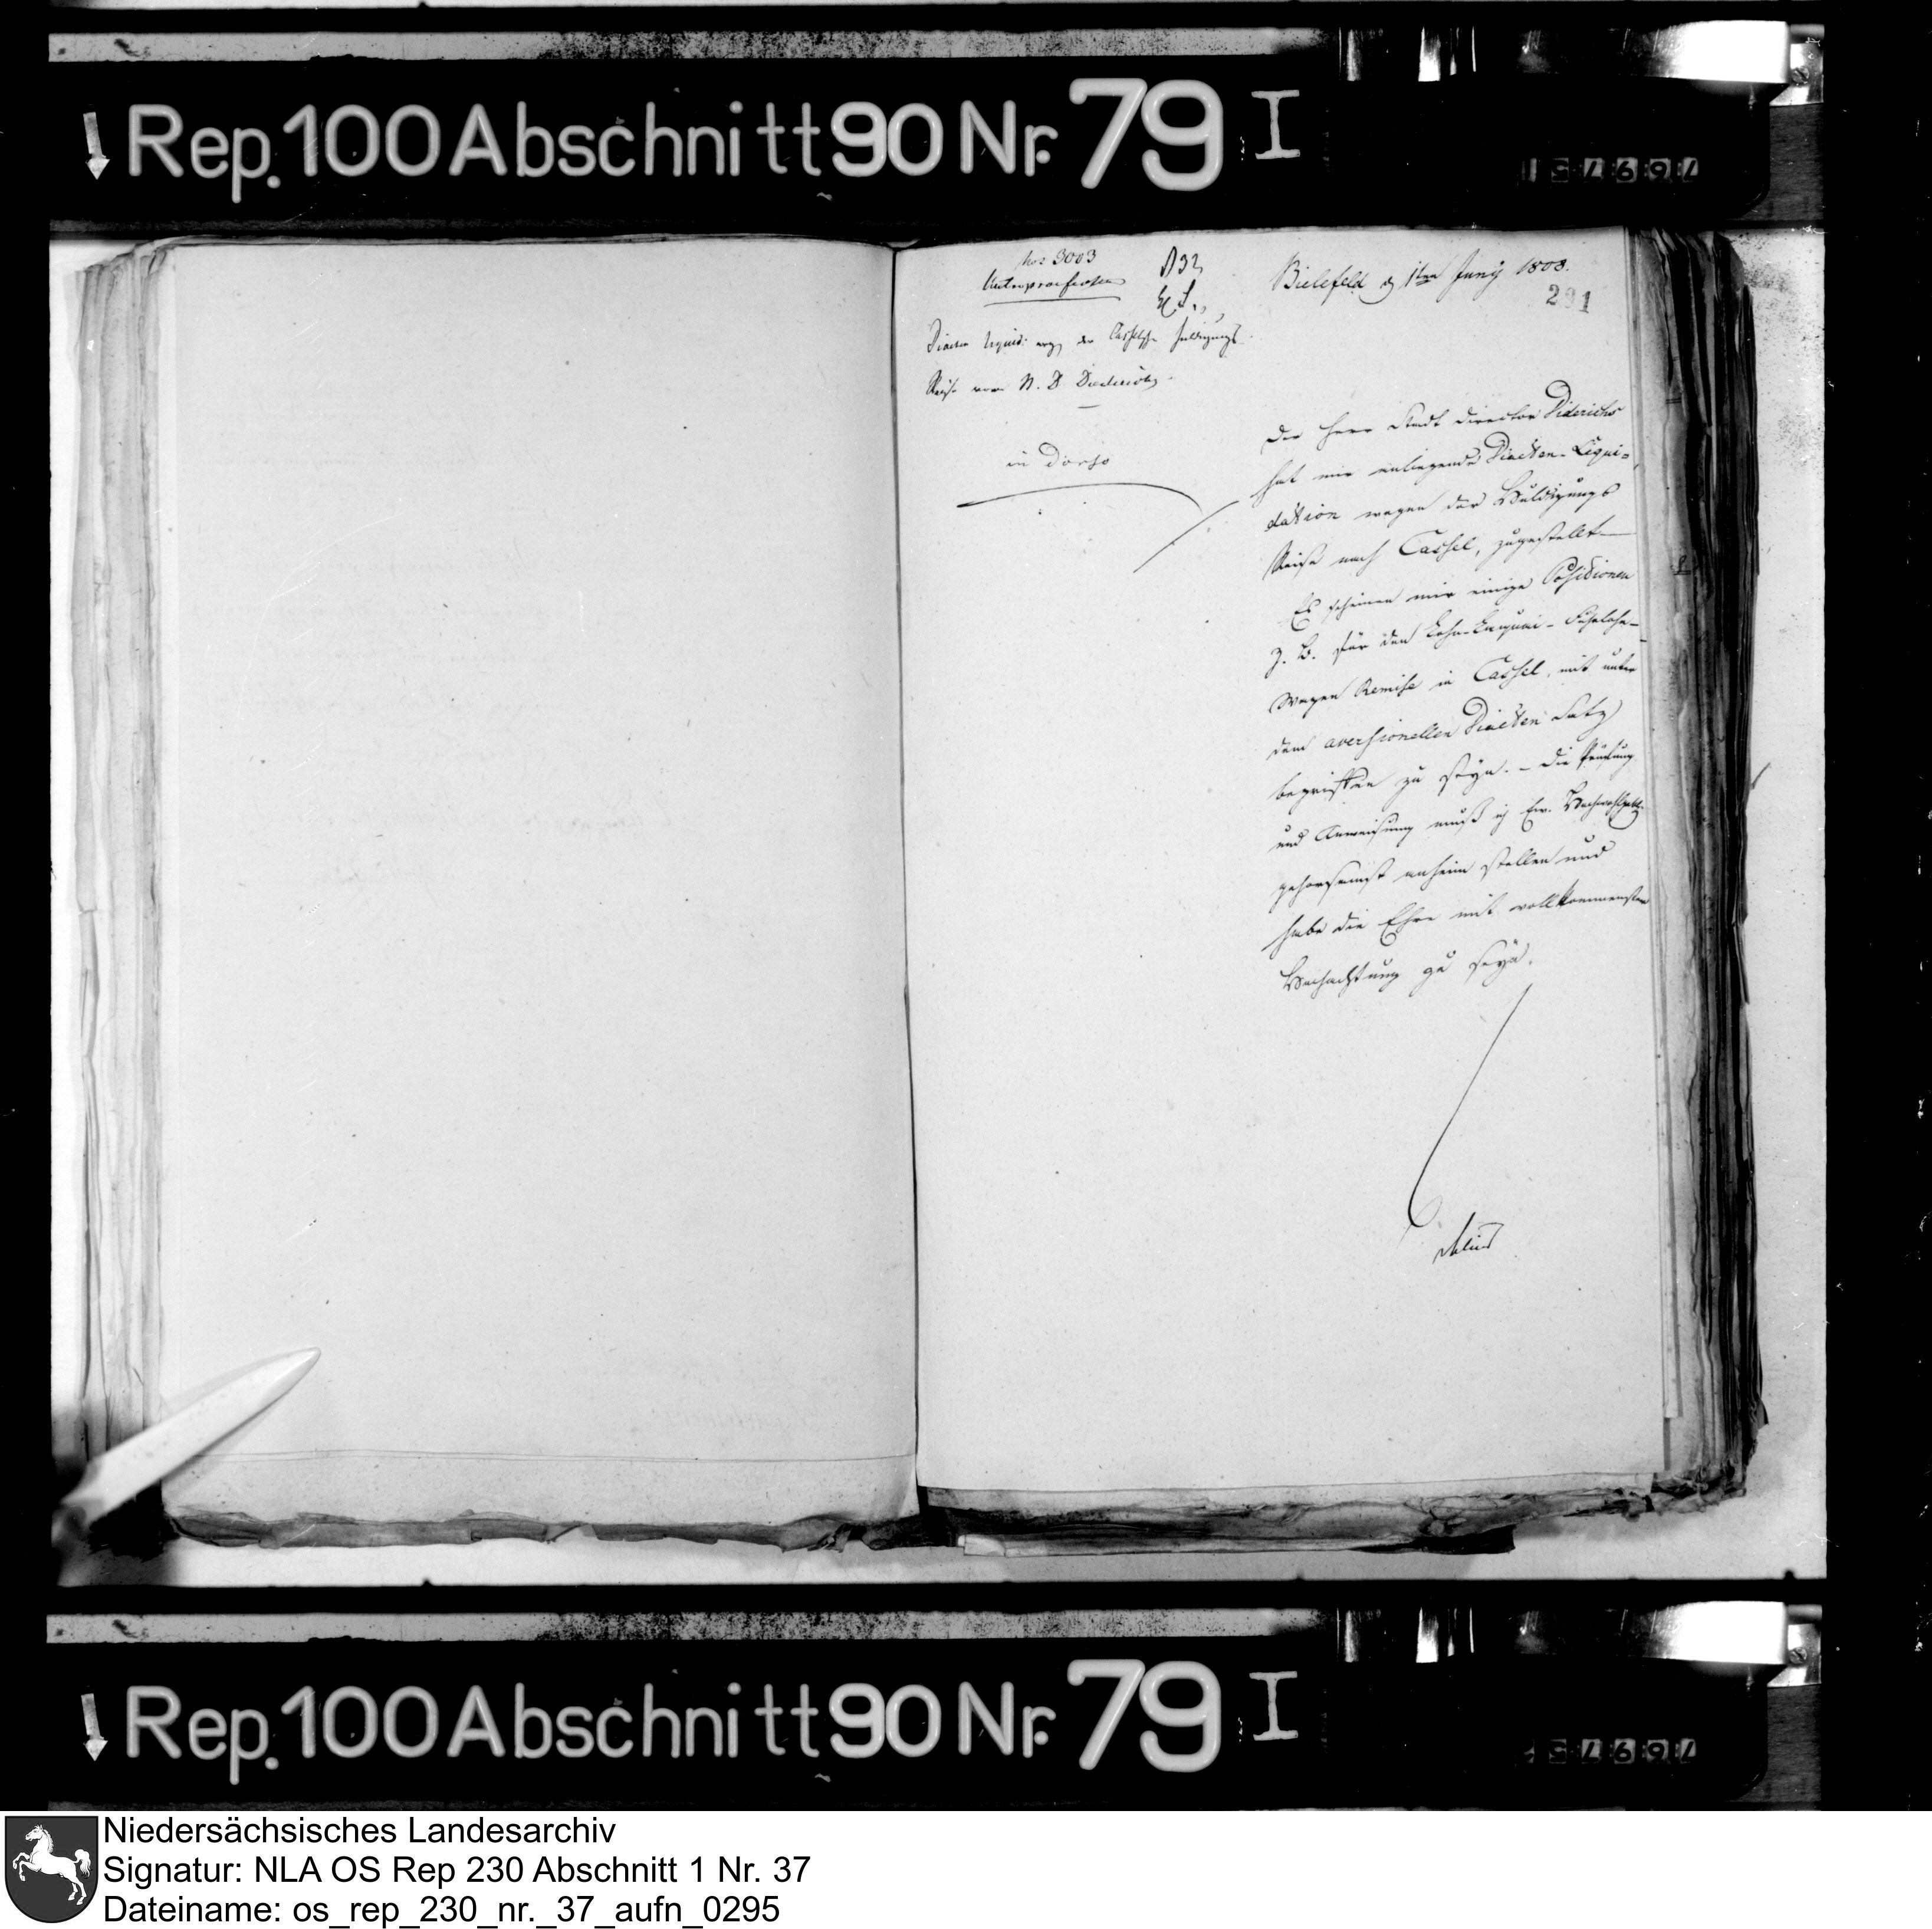 Rep. 100 Abschnitt 90 Nr. 79 I
No 3003
Unterpraefectur
Bielefeld d 1ten Juny 1808.
291
Diaeten Liquid: weg. der Casselschen Huldigungs
Reise von St. D. Diederichs.
in Dorso
Der Herr Stadt Director Diderichs
hat mir anliegende Diaeten-Liqui-
dation wegen der Huldigungs
Reise nach Cassel, zugestellt
Es scheinen mir einige Positionen
z. B. für den Lohn-Laquai
Wagen Remise in Cassel, mit unter
dem aversionellen Diaeten Satz
begriffen zu seyn. – Die Prüfung
und Anweisung muß ich Ew. Hochwohlgeb.
gehorsamst anheim stellen und
habe die Ehre mit vollkommenster
Hochachtung zu seyn.
Delius
Rep. 100 Abschnitt 90 Nr. 79 I
Niedersächsisches Landesarchiv
Signatur: NLA OS Rep 230 Abschnitt 1 Nr. 37
Dateiname: os_rep_230_nr._37_aufn_0295